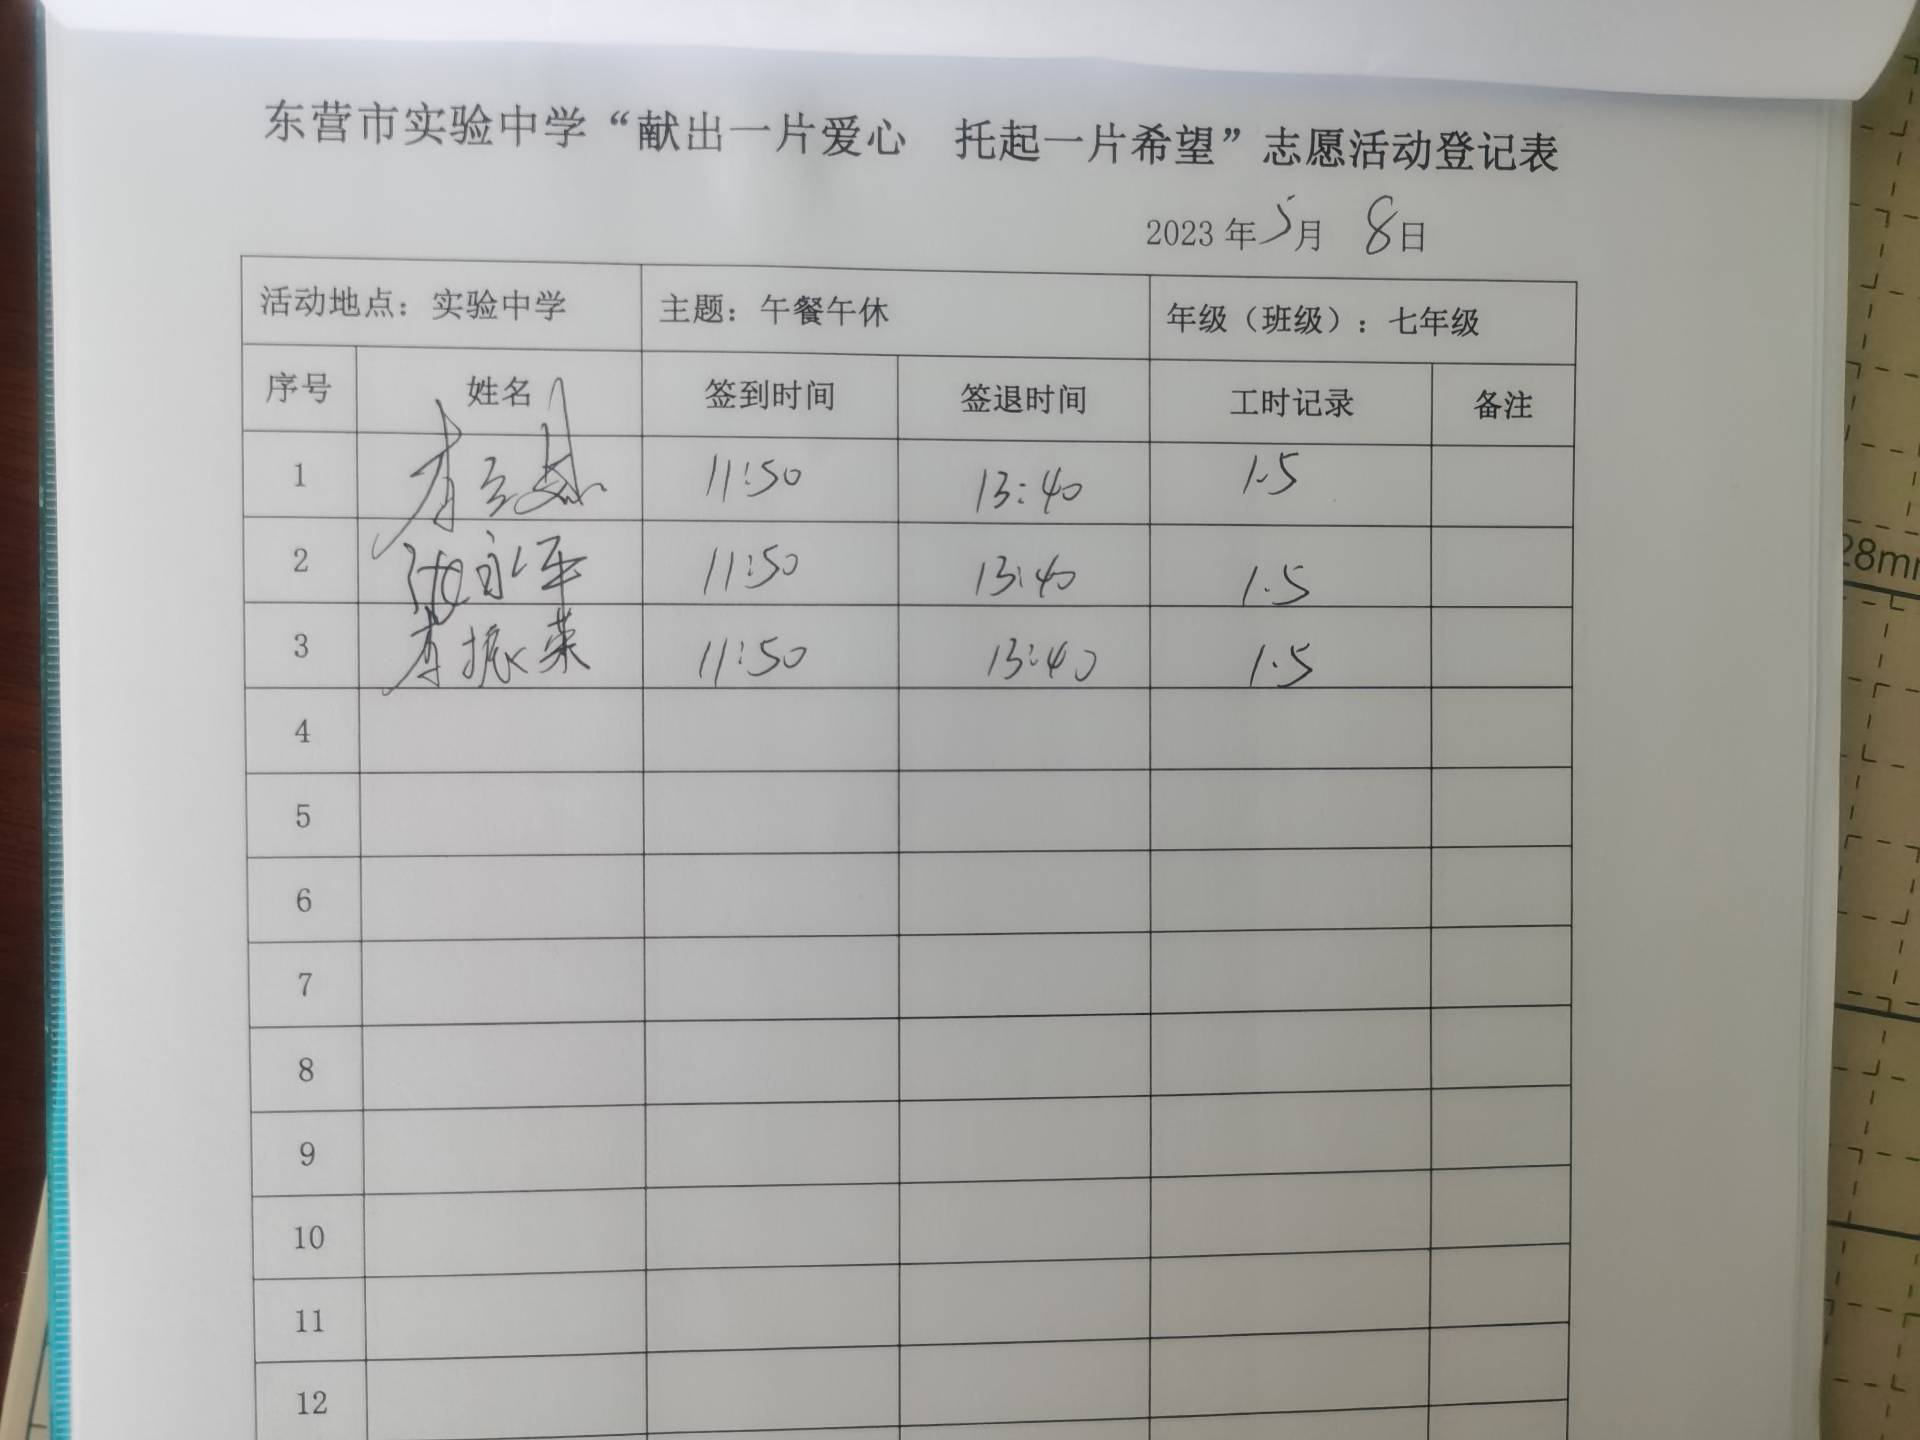 东营市实验中学“献出一片爱心 托起一片希望”志愿活动登记表
2023年5月 8日
活动地点：实验中学 主题：午餐午休 年级（班级）：七年级
序号 姓名 签到时间 签退时间 工时记录 备注
1 11:50 13:40 1.5
2 永平 11:50 13:40 1.5
3 李振荣 11:50 13:40 1.5
4
5
6
7
8
9
10
11
12
28mm